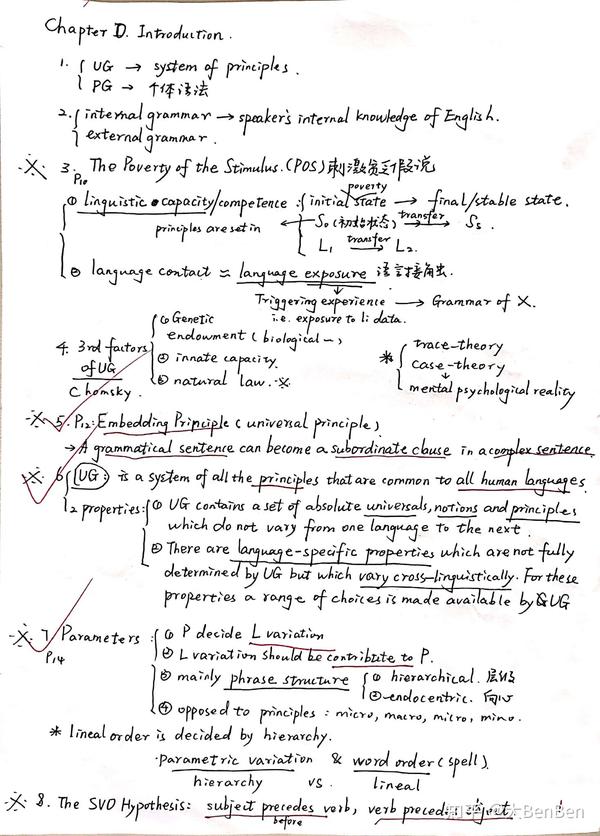 Chapter 0. Introduction.
1. { UG → system of principles.
PG → 个体语法
2. { internal grammar → speaker's internal knowledge of English.
external grammar.
※ 3. The Poverty of the Stimulus. (POS) 刺激贫乏假说
P10
① linguistic capacity/competence : { initial state → final/stable state.
poverty
principles are set in ← S0 (初始状态) transfer → Ss.
L1 transfer → L2.
② language contact ≈ language exposure 语言接触.
Triggering experience → Grammar of X.
i.e. exposure to li data.
4. 3rd factors of UG
Chomsky.
① Genetic endowment (biological ~)
② innate capacity.
③ natural law. ※
* { trace-theory
case-theory
↓
mental psychological reality
※ 5. P12: Embedding Principle (universal principle)
→ A grammatical sentence can become a subordinate clause in a complex sentence.
※ 6 { UG : is a system of all the principles that are common to all human languages.
2 properties: { ① UG contains a set of absolute universals, notions and principles
which do not vary from one language to the next.
② There are language-specific properties which are not fully
determined by UG but which vary cross-linguistically. For these
properties a range of choices is made available by UG
※ 7. Parameters : { ① P decide L variation
P14
② L variation should be contribute to P.
③ mainly phrase structure { ① hierarchical. 层级
② endocentric. 向心
④ opposed to principles : micro, macro, micro,
* lineal order is decided by hierarchy.
parametric variation & word order (spell).
hierarchy vs. lineal
※ 8. The SVO Hypothesis: subject precedes verb, verb precedes object.
before
知乎 @大BenBen